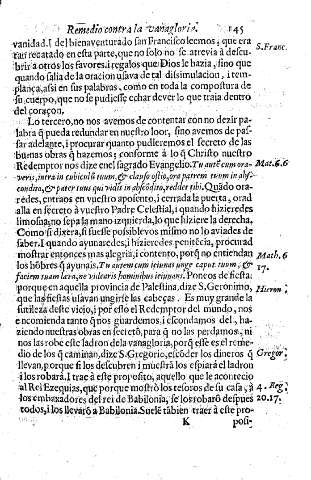 Remedio contra la vanagloria. 145
vanidad. I del bienaventurado san Francisco leemos, que era S. Franc.
tan recatado en esta parte, que no solo no se atrevia à descu-
brir à otros los favores. i regalos que Dios le hazia, sino que
quando salia de la oracion usava de tal dissimulacion, i tem-
plança, assi en sus palabras, como en toda la compostura de
su cuerpo, que no se pudiesse echar de ver lo que traia dentro
del coraçon.
Lo tercero, no nos avemos de contentar con no dezir pa-
labra q̃ pueda redundar en nuestro loor, sino avemos de pas-
sar adelante, i procurar quanto pudieremos el secreto de las
buenas obras q̃ hazemos; conforme à lo q̃ Christo nuestro
Redemptor nos dize en el sagrado Evangelio. Tu autẽ cum ora- Mat. 6. 6
veris, intra in cubiculũ tuum, & clauso ostio, ora patrem tuum in abs-
condito, & pater tuus qui vidit in abscõdito, reddet tibi. Quãdo ora-
redes, entraos en vuestro aposento, i cerrada la puerta, orad
alla en secreto à vuestro Padre Celestial, i quando hizieredes
limosna, no sepa la mano izquierda, lo que hiziere la derecha.
Como si dixera, si fuesse possible vos mismo no lo aviades de
saber. I quando ayunaredes, i hizieredes penitẽcia, procurad
mostrar entonces mas alegria, i contento, porq̃ no entiendan Math. 6
los hõbres q̃ ayunais. Tu autem cum ieiunas unge caput tuum, & 17.
faciem tuam lava, ne videaris hominibus ieiunans. Poneos de fiesta;
porque en aquella provincia de Palestina, dize S. Geronimo, Hieron.
que las fiestas usavan ungirse las cabeças. Es muy grande la
sutileza deste vicio, i por esso el Redemptor del mundo, nos
encomienda tanto q̃nos guardemos, i escondamos del, ha-
ziendo nuestras obras en secretò, para q̃ no las perdamos, ni
nos las robe este ladron dela vanagloria, porq̃ esse es el reme-
dio de los q̃ caminan, dize S. Gregorio, escõder los dineros q̃ Gregor.
llevan, porque si los descubren i muestrà los espiarà el ladron
i los robarà. I trae à este proposito, aquello que le acontecio
al Rei Ezequias, que porque mostrò los tesoros de su casa, à 4. Reg.
los embaxadores del rei de Babilonia, se los robarõ despues 20. 17.
todos, i los llevarõ a Babilonia. Suelẽ tãbien traer à este pro-
K posi-